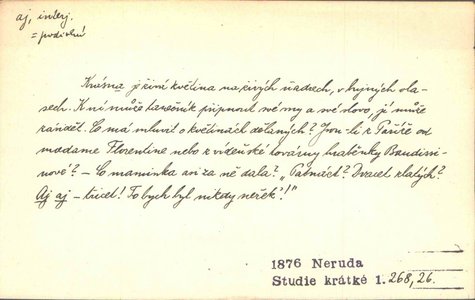 aj, interj.
= podivení
Krásná je živá květina na živých ňadrech, v bujných vla-
sech. K ní může tanečník připnout své my a své slovo, jí může
závidět. Co má mluvit o květinách dělaných? Jsou-li z Paříže od
madame Florentine nebo z vídeňské továrny hraběnky Baudissi-
nové? – Co maminka asi za ně dala? „Patnáct? Dvacet zlatých?
Aj aj – třicet! To bych byl nikdy neřek'!"
1876 Neruda
Studie krátké 1. 268, 26.